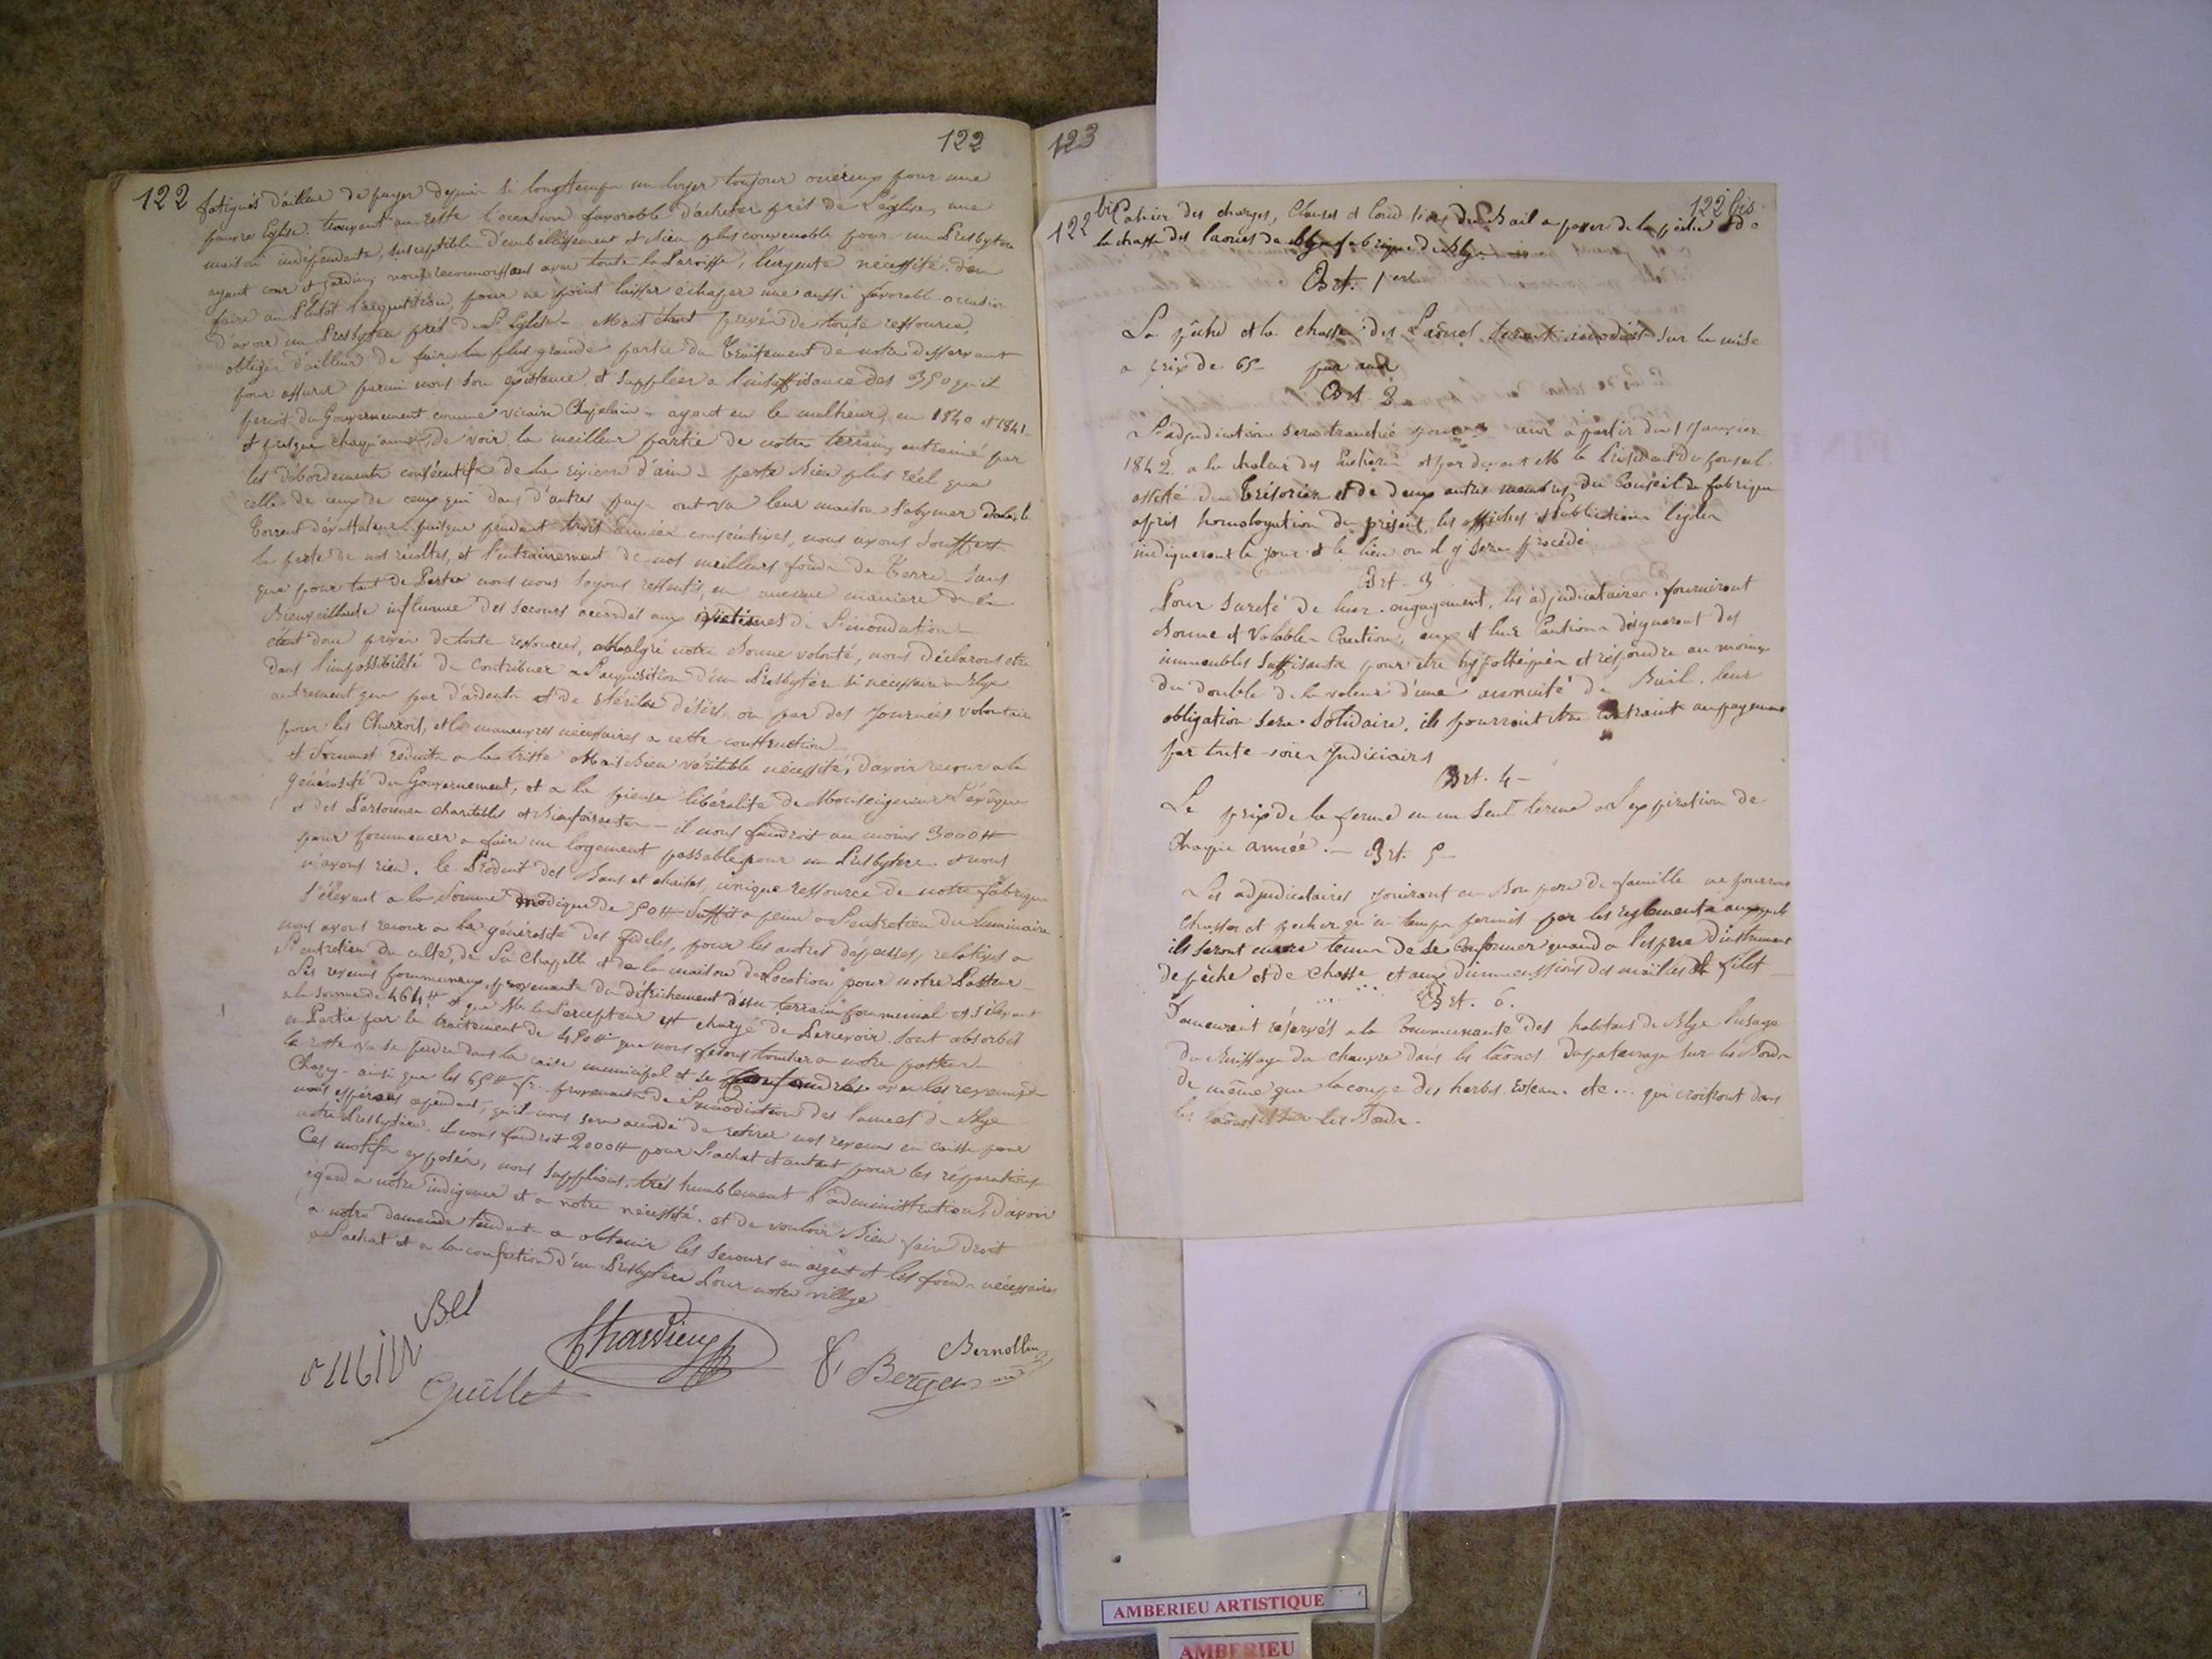 122
122 fatigués d'ailleur de payer depuis si longtemps un loyer toujour onéreux pour une
pauvre Eglise. trouvant au reste l'occasion favorable d'acheter prés de L'église, une
maison indépendante, susceptible d'embellissement et bien plus convenable pour un Presbytere
ayant cour et jardin, nous reconnoissons avec toute la Paroisse, l'urgente nécessité d'en
faire au Plutôt l'acquisition, pour ne point laisser échaper une aussi favorable occasion
d'avoir un Presbytere prés de L'Eglise - Mais étant privés de toute ressource,
obligés d'ailleur de faire la plus grande partie du Traitement de notre desservant
pour assurer parmi nous son existance, et suppléer a l'insuffisance des 350 qu'il
percoit du Gouvernement comme vicaire Chapelain - ayant eu le malheur, en 1840 et 1841
et presque chaqu'année, de voir la meilleur partie de notre terrain, entrainé par
les débordements consécutifs de la riviere d'ain - perte bien plus réel que
celle de ceux de ceux qui dans d'autres pays ont vu leur maison s'abymer dans le
Torrent dévastateur - puisque pendant trois années consécutives, nous avons souffert
la perte de nos récoltes, et l'entrainement de nos meilleurs fonds de Terre - sans
que pour tant de Pertes nous nous soyons ressentis, en aucune maniere de la
Bienveillante influence des secours accordés aux victimes de L'inondation -
étant donc privés de toute ressources, Malgré notre bonne volonté, nous déclarons etre
dans l'impossibilité de Contribuer a L'acquisition d'un Presbytere si nécessaire a Blye
autrement que par d'ardents et de stériles désirs, ou par des Journées volontaires
pour les Charrois, et les manœuvres nécessaires a cette construction -
et sommes réduits a la triste Mais bien véritable nécessité, d'avoir recour a la
générosité du Gouvernement, et a la pieuse libéralité de Monseigneur L'évêque
et des Personnes charitables et Bienfaisantes - il nous faudroit au moins 3000 ₶
pour commencer a faire un logement passable pour un Presbytere. et nous
n'avons rien. le Produit des Bans et chaises, unique ressource de notre fabrique
s'élevant a la somme modique de 50 ₶ suffit a peine a L'entretien du Luminaire.
nous avons recour a la générosité des fideles, pour les autres dépenses, relatives a
L'entretien du culte, de La Chapelle et de la maison de Location pour notre Pasteur -
Les revenus communaux, provenants du défrichement d'un terrain communal et s'élevant
a la somme de 464 ₶ et que Mr. le Percepteur est chargé de Percevoir. sont absorbés
en Partie par le traitement de 450 ₶ que nous fesons toucher a notre pasteur -
le reste va se perdre dans la caisse municipal et se confondre avec les revenus de
Chazey - ainsi que les 65 ₶ provenants de L'amodiation des laônes de Blye
nous espérons cependant, qu'il nous sera accordé de retirer nos revenus en caisse pour
notre Presbytère. il nous faudroit 2000 ₶ pour L'achat et autant pour les réparations
Ces motifs exposés, nous supplions, trés humblement l'administration, d'avoir
égard a notre indigence et a notre nécessité. et de vouloir bien faire droit
a notre demande tendante a obtenir les secours en argent et les fonds nécessaires
a L'achat et a la confection d'un Presbytere Pour notre village
Bel
Chardieux
Bernollin
Guillet
Berger
123
122 bis
122 bis Cahier des charges, Clauses et Conditions du Bail a passer de la pêche et de
la chasse des laônes de la fabrique de Blye
Art. 1er
La pêche et la chasse des Laônes seront amodiées sur la mise
a prix de 65 - par an
Art. 2
L'adjudication sera tranchée pour 3 ans a partir du 1 Janvier
1842. a la chaleur des Enchères et par devant M le Président du Conseil
assisté du Trésorier et de deux autres membres du Conseil de fabrique
aprés homologation du présent, les affiches et publications légales
indiqueront le jour et le lieu ou il y sera procédé.
Art - 3
Pour sureté de leur engagement, les adjudicataires fourniront
Bonne et Valable Caution, eux et leur Cautions désigneront des
immeubles suffisants pour etre hypothéqués et répondre au moins
du double de la valeur d'une annuité de Bail. leur
obligation sera solidaire, ils pourront etre Contraints au payement
par toute voies Judiciaires
Art. 4 -
Le prix de la ferme en un seul terme a L'expiration de
Chaque année. - Art. 5 -
Les adjudicataires jouiront en Bon pere de famille ne pourront
chasser et pecher qu'en temps permis par les reglements auxquels
ils seront encore tenus de se Conformer quand a l'espece d'instrument
de pêche et de chasse et aux dimenssions des mailes de filet -
Art. 6.
Demeurent réservés a la Communauté des habitans de Blye l'usage
du Ruissage du chanvre dans les laônes. Du paturage sur les Bords
de même que la coupe des herbes, roseaux. etc... qui croitront dans
les laônes et sur les Bords.
AMBERIEU ARTISTIQUE
AMBERIEU